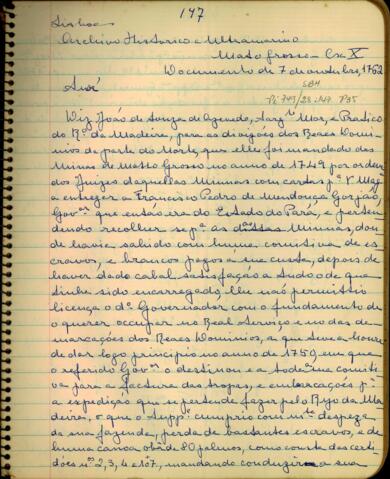 147
Lisboa
Archivo Historico e Ultramarino
Mato Grosso - Cx X
Documento de 7 de outubro, 1762
584
Snr.
Diz João de Souza de Azevedo, Sarg.to Mor, e Pratico
do R.o da Madeira, para as divizões dos Reaes Domi-
nios da parte do Norte, que elle foi mandado das
Minas de Matto Grosso no anno de 1749 por ordem
dos Juizes daquellas Minnas com cartas p.a V. Mag.e
a entregar a Francisco Pedro de Mendonça Gorjão,
Gov.or que então era do Estado do Pará, e perten-
dendo recolher-se p.a as d.as Minnas, don-
de havia sahido com huma comitiva de es-
cravos, e brancos pagos a sua custa, depois de
haver dado cabal satisfação a tudo o de que
tinha sido encarregado, lhe não permittio
licença o d.o Governador com o fundamento de
o querer occupar no Real Serviço e no das de-
marcações dos Reaes Dominios, a que teve a honra
de dar logo principio no anno de 1750 em que
o referido Gov.or o destinou e a toda a sua comiti-
va para a factura das tropas, e embarcações p.a
a expedição que se pertende fazer pelo Ryo da Ma-
deira, o que o Supp.e cumprio com m.ta despeza
da sua fazenda, perda de bastantes escravos, e de
huma canoa de 80 palmos, como consta das certi-
dões n.os 2, 3, 4 e 7, mandando conduzir a sua